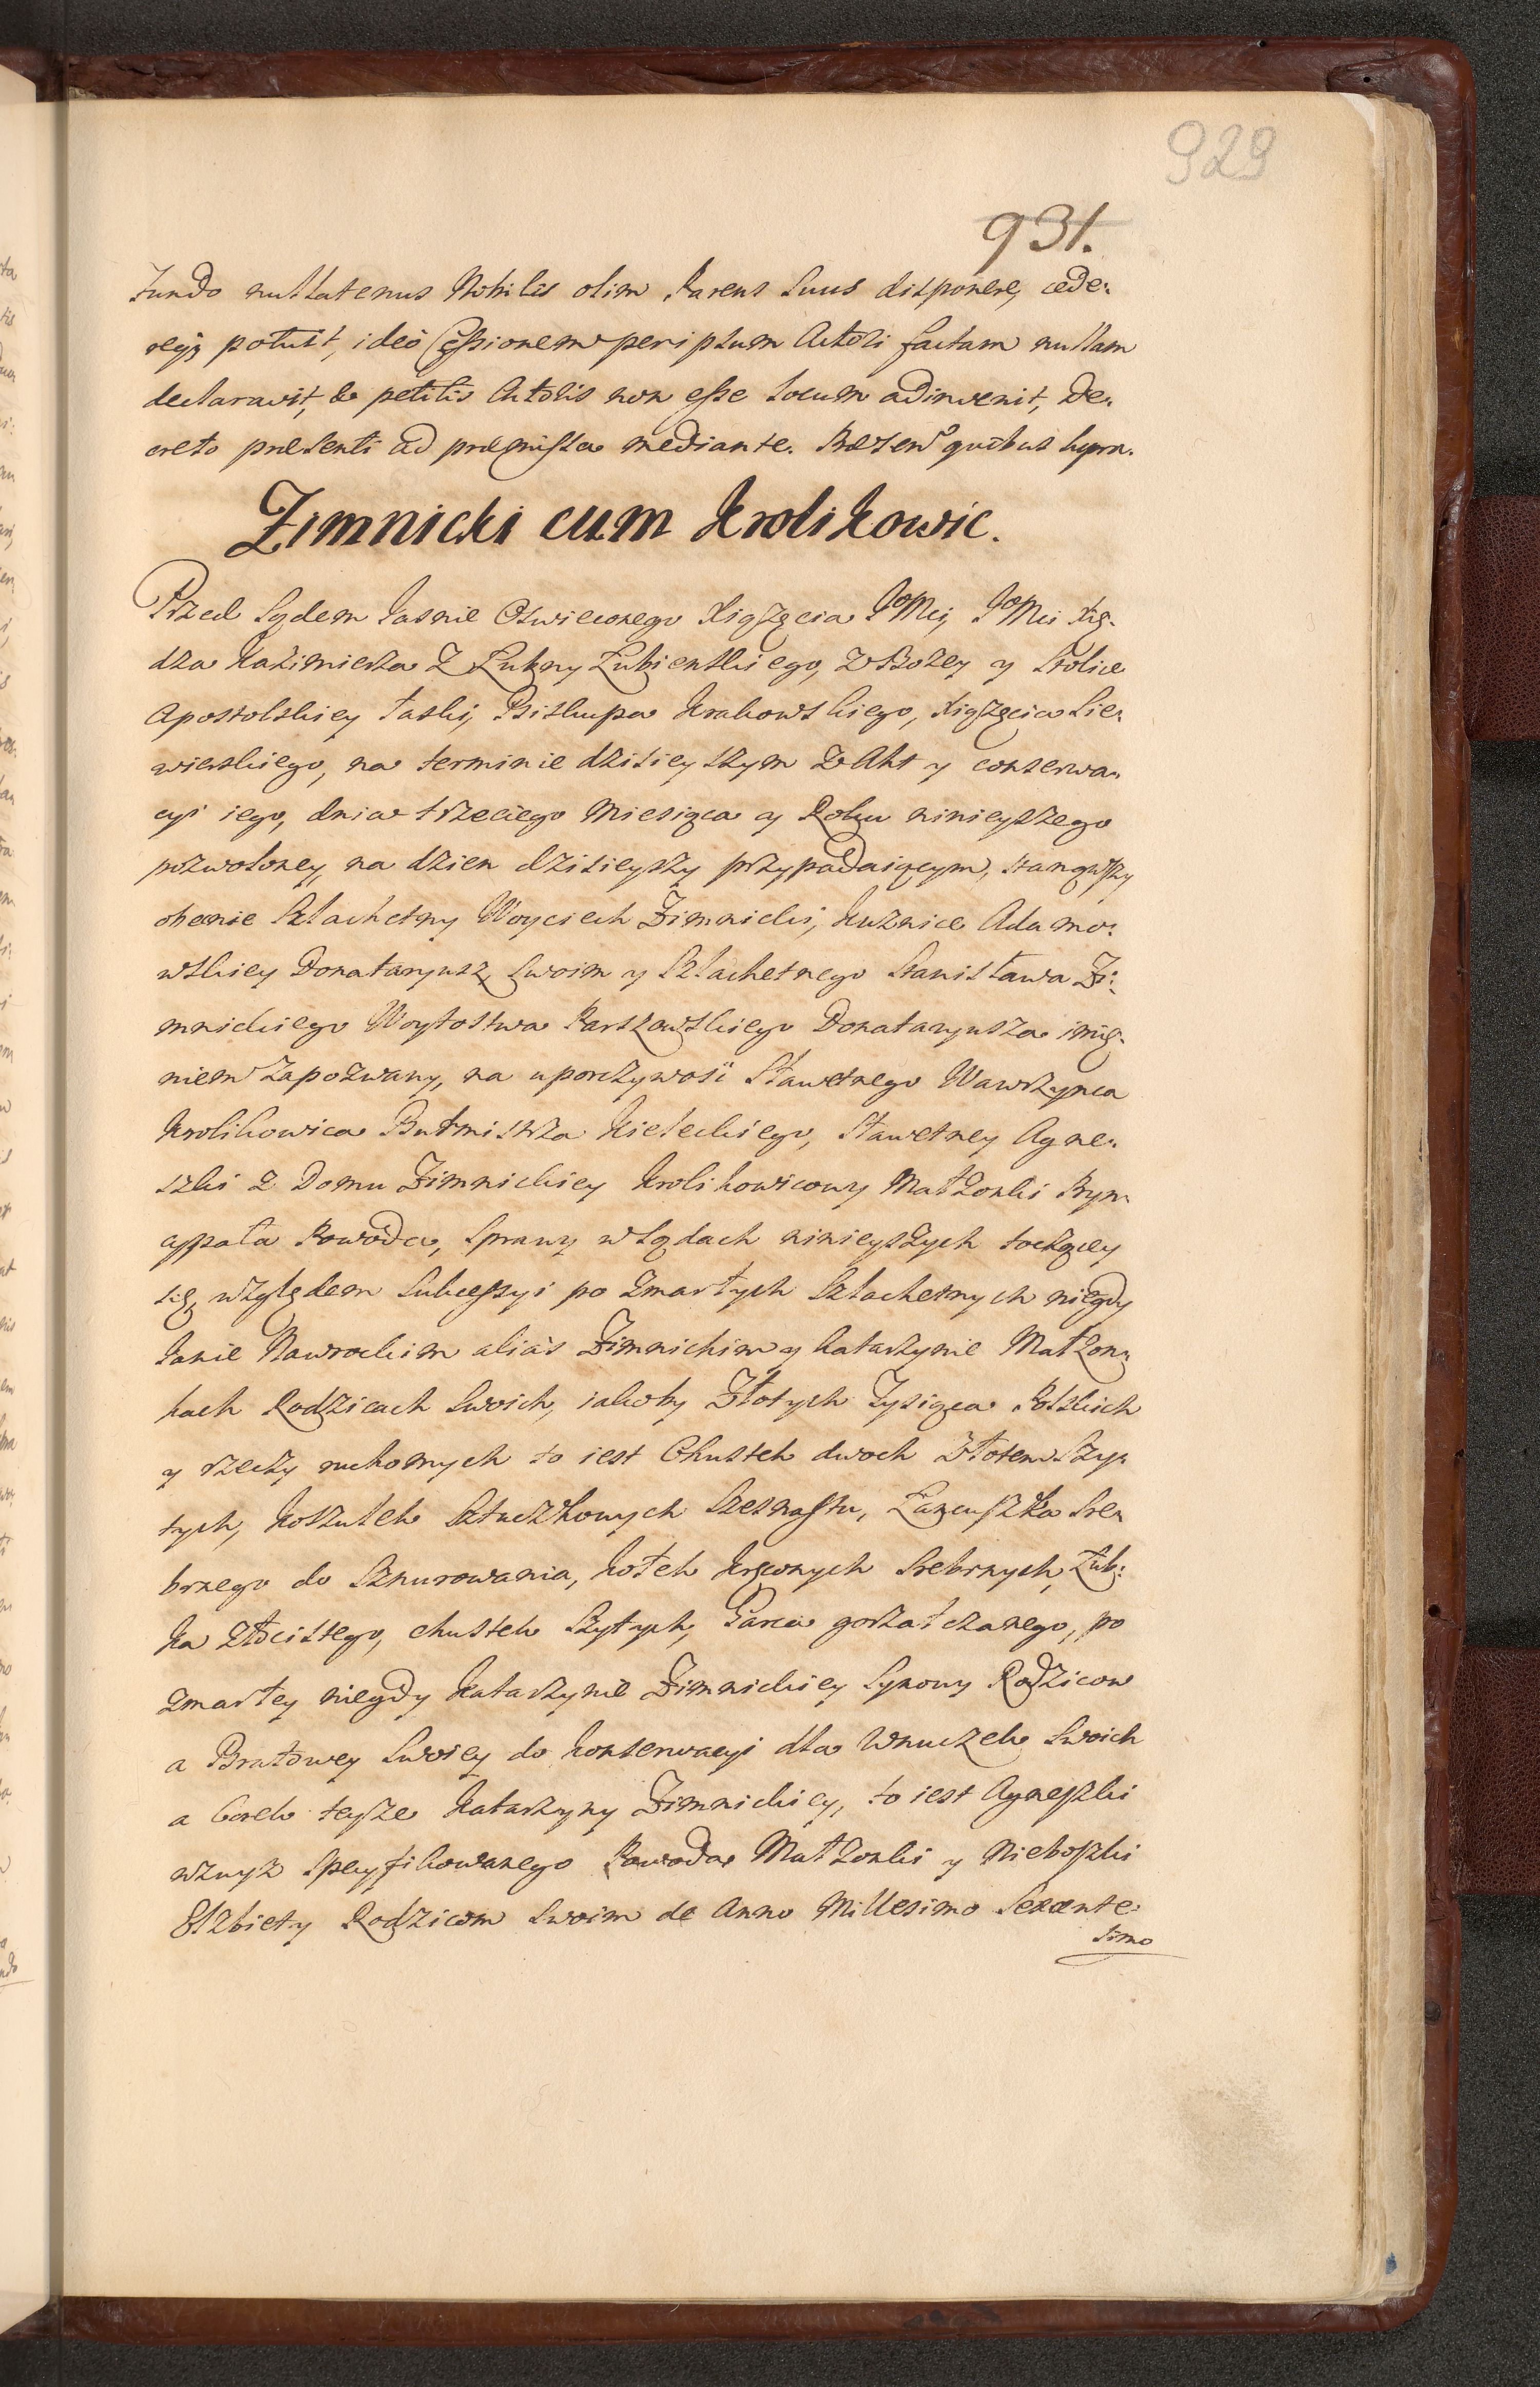 929
931.
Fundo nullatenus Nobilis olim Parens Suus disponere, cede-
reqz potuit, ideò Cessionem per ipsum Actõri factam nullam
declaravit, & petitis Actoris non esse locum adinvenit, De-
creto præsenti ad præmissa mediante. Præsen quibus supra.
Zimnicki cum Krolikowic.
Przed Sądem Jasnie Oswieconego Xiążęcia JoMci, JoMci Xię-
dza Kazimierza Z Łubny Łubienskiego, z Bozey y Stolice
Apostolskiey łaski, Biskupa Krakowskiego, Xiążęcia Sie-
wierskiego, na terminie dzisieyszym z Akt y conserwa-
cyi iego, dnia trzeciego Miesiąca y Roku ninieyszego
pozwoloney, na dzien dzisieyszy przypadaiącym, stanąwszy
obecnie Szlachetny Woyciech Zimnicki, Kuznice Adamo-
wskiey Donataryusz, Swoim y Szlachetnego Stanisława Zi-
mnickiego Woytostwa Parszowskiego Donataryusza imię-
niem Zapozwany, na uporczywość Sławetnego Wawrzynca
Krolikowica Burmistrza Kieleckiego, Sławetney Agne-
szki z Domu Zimnickiey Krolikowicowy Małzonki Pryn-
cypała Powoda, Sprawy w Sądach ninieyszych toczącey
się, względem Sukcessyi po Zmarłych Szlachetnych niegdy
Janie Nawrockim aliàs Zimnickim y Katarzynie Małzon-
kach Rodzicach Swoich, iakoby Złotych Tysiąca Polskich
y rzeczy ruchomych to iest Chustek dwoch złotem Szy-
tych, Koszulek Sztuczkowych Szesnastu, Łancuszka Sre-
brnego do Sznurowania, Kołek Kręconych Srebrnych, Kub-
ka Złocistego, chustek Szytych, Garca gorzałczanego, po
Zmarłey niegdy Katarzynie Zimnickiey Synowy Rodzicow
a Bratowey Swoiey do konserwacyi dla Wnuczek Swoich
a Corek teyze Katarzyny Zimnickiey, to iest Agneszki
wzwyz Specyfikowanego Powoda Małzonki y Nieboszki
Elzbiety Rodzicom Swoim de Anno Millesimo Sexcente-
simo